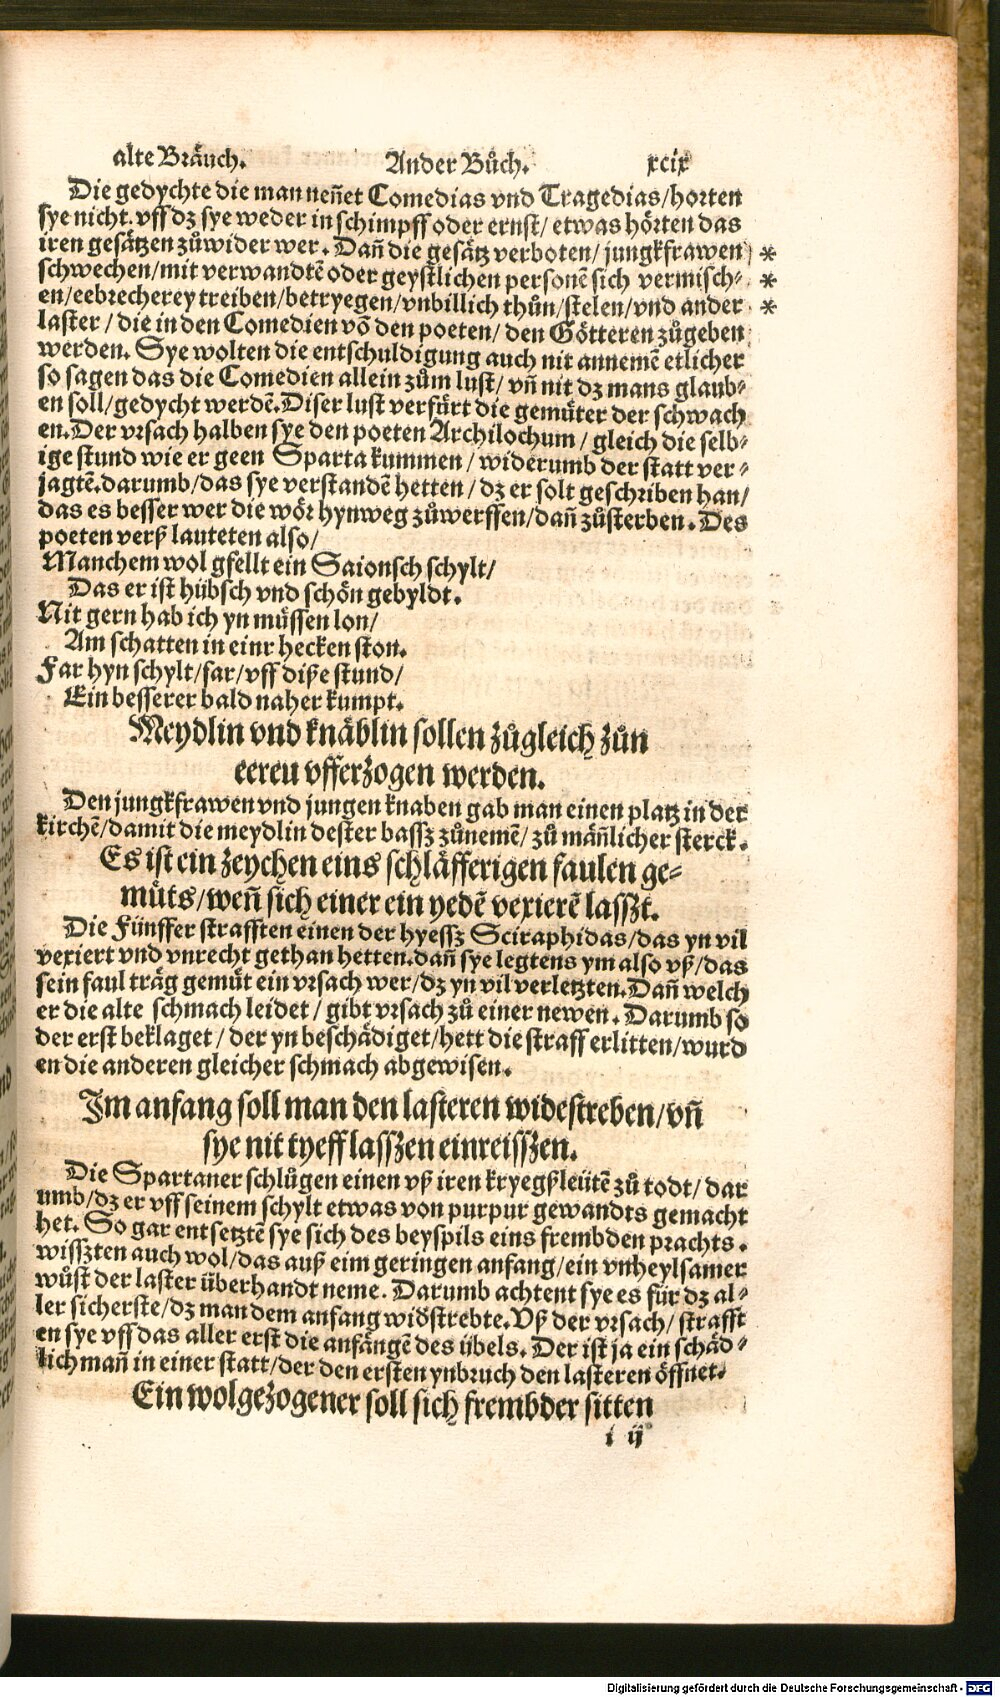 alte Bräuch. Ander Bůch. xcix
Die gedychte die man neñet Comedias vnd Tragedias/horten
sye nicht. vff dz sye weder in schimpff oder ernst/ etwas hörten das
iren gesätzen zůwider wer. Dañ die gesätz verboten/ jungkfrawen *
schwechen/mit verwandtē oder geystlichen personē sich vermisch⸗ *
en/eebrecherey treiben/betryegen/vnbillich thůn/stelen/vnd ander *
laster/ die in den Comedien vō den poeten/ den Götteren zůgeben
werden. Sye wolten die entschuldigung auch nit annemē etlicher
so sagen das die Comedien allein zům lust/ vñ nit dz mans glaub⸗
en soll/gedycht werdē. Diser lust verfürt die gemüter der schwach
en. Der vrsach halben sye den poeten Archilochum/ gleich die selb⸗
ige stund wie er geen Sparta kummen/ widerumb der statt ver⸗
jagtē. darumb/das sye verstandē hetten/ dz er solt geschriben han/
das es besser wer die wör hynweg zůwerffen/dañ zůsterben. Des
poeten verß lauteten also/
Manchem wol gfellt ein Saionsch schylt/
Das er ist hübsch vnd schön gebyldt.
Nit gern hab ich yn müssen lon/
Am schatten in einr hecken ston.
Far hyn schylt/far/vff diße stund/
Ein besserer bald naher kumpt.
Meydlin vnd knäblin sollen zůgleich zůn
eereu vfferzogen werden.
Den jungkfrawen vnd jungen knaben gab man einen platz in der
kirchē/damit die meydlin dester bassz zůnemē/ zů mäñlicher sterck.
Es ist ein zeychen eins schläfferigen faulen ge⸗
müts/weñ sich einer ein yedē vexierē lasszt.
Die Fünffer strafften einen der hyessz Sciraphidas/das yn vil
vexiert vnd vnrecht gethan hetten. dañ sye legtens ym also vß/das
sein faul träg gemüt ein vrsach wer/dz yn vil verletzten. Dañ welch
er die alte schmach leidet/ gibt vrsach zů einer newen. Darumb so
der erst beklaget/ der yn beschädiget/hett die straff erlitten/wurd
en die anderen gleicher schmach abgewisen.
Im anfang soll man den lasteren widestreben/vñ
sye nit tyeff lasszen einreisszen.
Die Spartaner schlůgen einen vß iren kryegßleütē zů todt/ dar
umb/dz er vff seinem schylt etwas von purpur gewandts gemacht
het. So gar entsetztē sye sich des beyspils eins frembden prachts.
wisszten auch wol/das auß eim geringen anfang/ein vnheylsamer
wůst der laster überhandt neme. Darumb achtent sye es für dz al⸗
ler sicherste/dz man dem anfang widstrebte. Vß der vrsach/ strafft
en sye vff das aller erst die anfängē des übels. Der ist ja ein schäd⸗
lich mañ in einer statt/der den ersten ynbruch den lasteren öffnet.
Ein wolgezogener soll sich frembder sitten
i ij
Digitalisierung gefördert durch die Deutsche Forschungsgemeinschaft - DFG